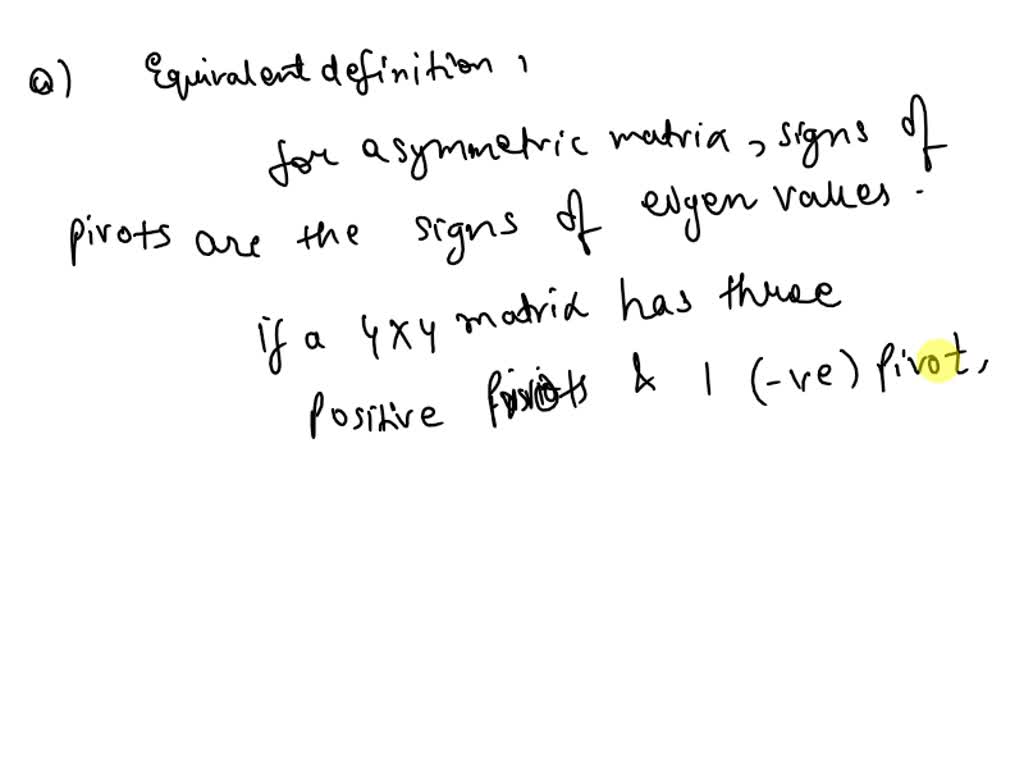 a) Equivalent definition,
for a symmetric matrix, signs of
pivots are the signs of eigen values.
if a 4x4 matrix has three
positive pivots & 1 (-ve) pivot,